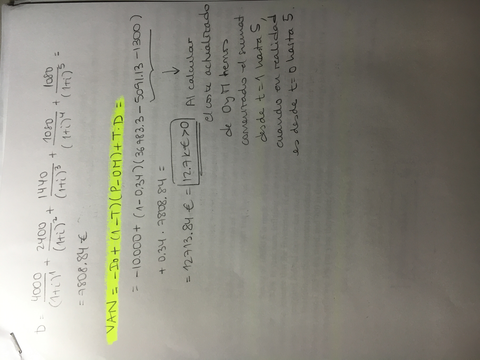 D = 4000/(1+i)^1 + 2400/(1+i)^2 + 1440/(1+i)^3 + 1080/(1+i)^4 + 1080/(1+i)^5 =
= 7808.84 €
VAN = -Io + (1-T)(P-OM) + T·D =
= -10.000 + (1-0,34)(36783.3 - 5091,13 - 1300)
+ 0.34 · 7808.84 =
= 12713.84 € = 12.7 k€ > 0
Al calcular
el coste actualizado
de OyM hemos
comenzado el sumat
desde t=1 hasta 5,
cuando en realidad
es desde t=0 hasta 5.